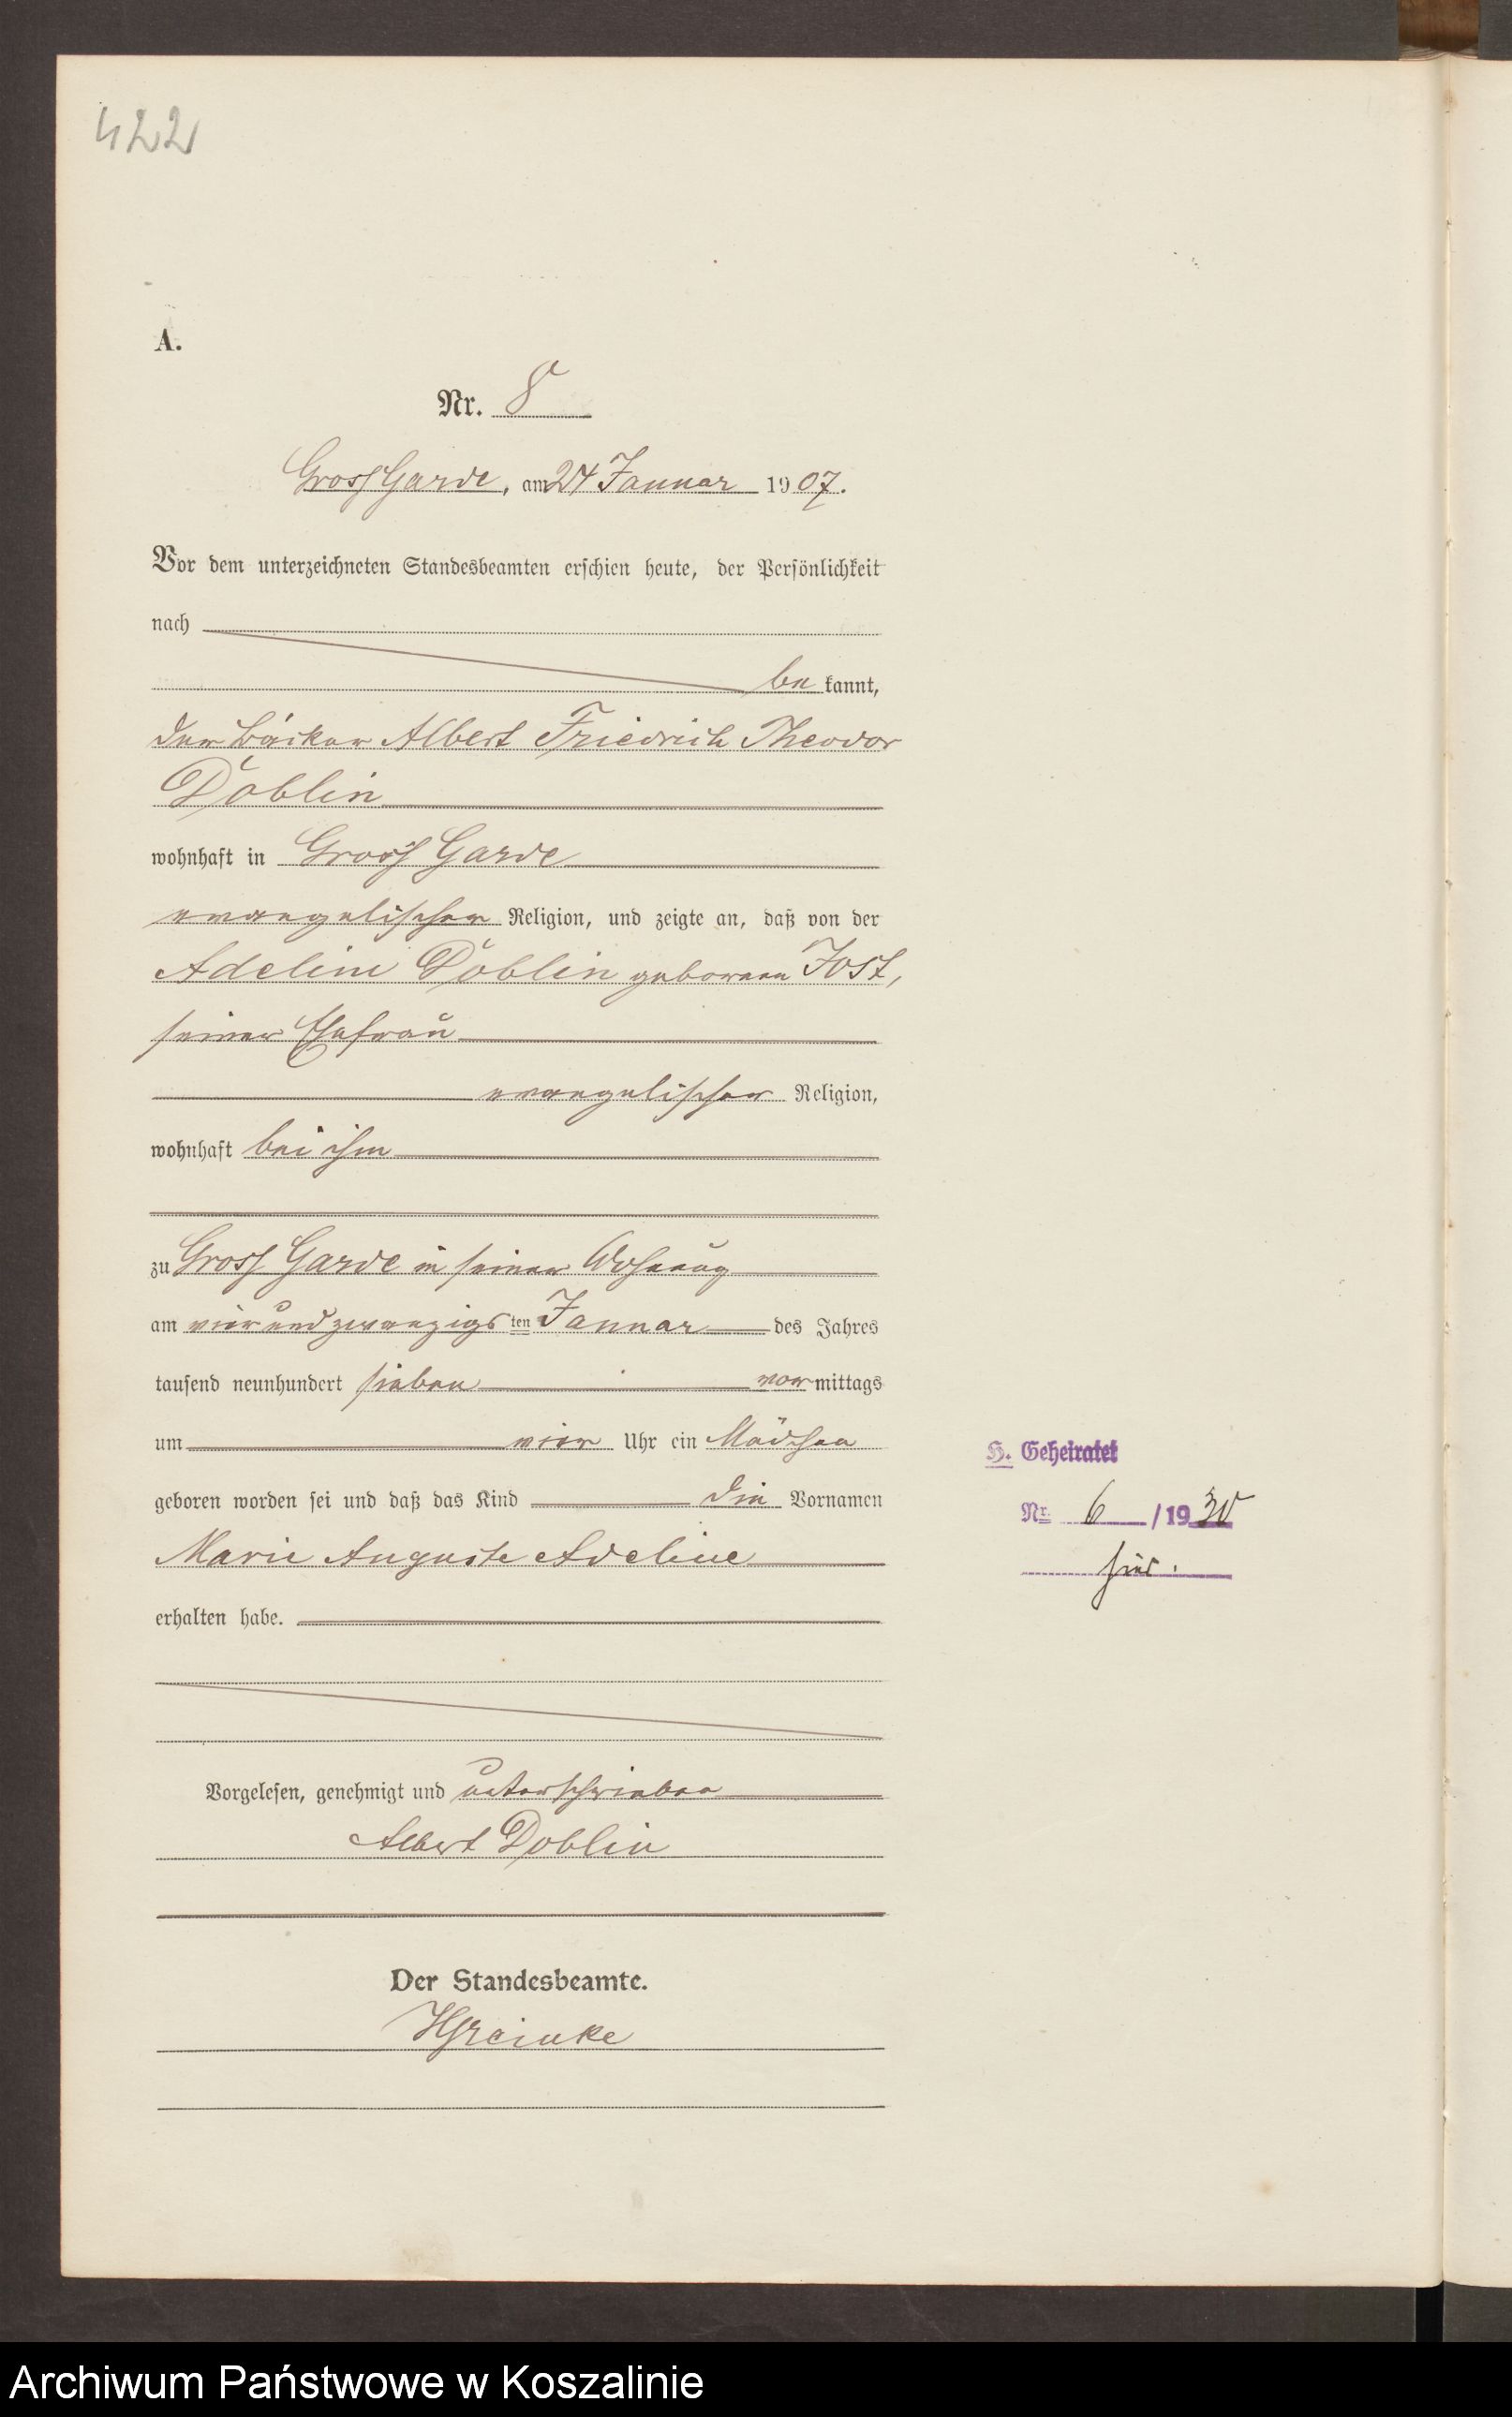 422
A.
Nr. 8
Gross Garde, am 24 Januar 1907.
Vor dem unterzeichneten Standesbeamten erschien heute, der Persönlichkeit
nach
be kannt,
der Bäcker Albert Friedrich Theodor
Döblin
wohnhaft in Gross Garde
evangelischer Religion, und zeigte an, daß von der
Adeline Döblin geborenen Jost,
seiner Ehefrau
evangelischer Religion,
wohnhaft bei ihm
zu Gross Garde in seiner Wohnung
am vier und zwanzigs ten Januar des Jahres
tausend neunhundert sieben vor mittags
um vier Uhr ein Mädchen
geboren worden sei und daß das Kind die Vornamen
Marie Auguste Adeline
erhalten habe.
Vorgelesen, genehmigt und unterschrieben
Albert Döblin
Der Standesbeamte.
Reinke
H. Geheiratet
Nr. 6 / 1930
hier.
Archiwum Państwowe w Koszalinie